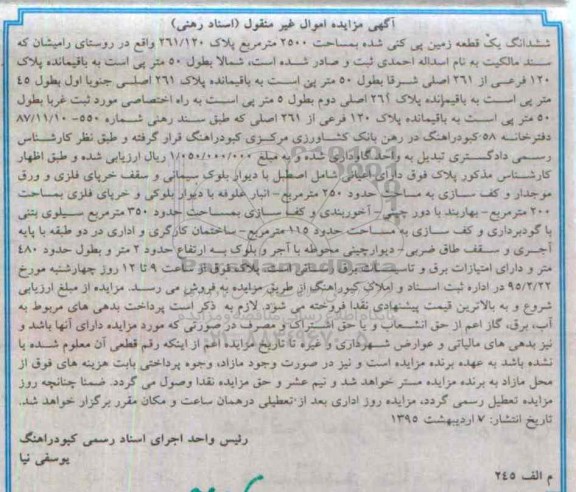 آگهی مزایده اموال غیر منقول (اسناد رهنی)
ششدانگ یک قطعه زمین پی کنی شده بمساحت ۲۵۰۰ مترمربع پلاک ۲۶۱/۱۲۰ واقع در روستای رامیشان که
سند مالکیت به نام اسداله احمدی ثبت و صادر شده است، شمالا بطول ۵۰ متر پی است به باقیمانده پلاک
۱۲۰ فرعی از ۲۶۱ اصلی شرقا بطول ۵۰ متر پی است به باقیمانده پلاک ۲۶۱ اصلی جنوبا اول بطول ۴۵
متر پی است به باقیمانده پلاک ۲۶۱ اصلی دوم بطول ۵ متر پی است به راه اختصاصی مورد ثبت غربا بطول
۵۰ متر پی است به باقیمانده پلاک ۱۲۰ فرعی از ۲۶۱ اصلی که طبق سند رهنی شماره ۵۵۰- ۸۷/۱۱/۱۰
دفترخانه ۵۸ کبودراهنگ در رهن بانک کشاورزی مرکزی کبودراهنگ قرار گرفته و طبق نظر کارشناس
رسمی دادگستری تبدیل به واحد گاوداری شده و به مبلغ ۱/۰۵۰/۰۰۰/۰۰۰ ریال ارزیابی شده و طبق اظهار
کارشناس مذکور پلاک فوق دارای اعیانی شامل اصطبل با دیوار بلوک سیمانی و سقف خرپای فلزی و ورق
موجدار و کف سازی به مساحت حدود ۲۵۰ مترمربع- انبار علوفه با دیوار بلوکی و خرپای فلزی بمساحت
۲۰۰ مترمربع- بهاربند با دور چینی- آخوربندی و کف سازی بمساحت حدود ۳۵۰ مترمربع سیلوی بتنی
با گودبرداری و کف سازی به مساحت حدود ۱۱۵ مترمربع- ساختمان کارگری و اداری در دو طبقه با پایه
آجری و سقف طاق ضربی- دیوارچینی محوطه با آجر و بلوک به ارتفاع حدود ۲ متر و بطول حدود ۴۸۰
متر و دارای امتیازات برق و تاسیسات برق است پلاک فوق از ساعت ۹ تا ۱۲ روز چهارشنبه مورخ
۹۵/۲/۲۲ در اداره ثبت اسناد و املاک کبودراهنگ از طریق مزایده به فروش می رسد. مزایده از مبلغ ارزیابی
شروع و به بالاترین قیمت پیشنهادی نقدا فروخته می شود. لازم به ذکر است پرداخت بدهی های مربوط به
آب، برق، گاز اعم از حق انشعاب و یا حق اشتراک و مصرف در صورتی که مورد مزایده دارای آنها باشد و
نیز بدهی های مالیاتی و عوارض شهرداری و غیره تا تاریخ مزایده اعم از اینکه رقم قطعی آن معلوم شده یا
نشده باشد به عهده برنده مزایده است و نیز در صورت وجود مازاد، وجوه پرداختی بابت هزینه های فوق از
محل مازاد به برنده مزایده مستر خواهد شد و نیم عشر و حق مزایده نقدا وصول می گردد. ضمنا چنانچه روز
مزایده تعطیل رسمی گردد، مزایده روز اداری بعد از تعطیلی درهمان ساعت و مکان مقرر برگزار خواهد شد.
تاریخ انتشار: ۷ اردیبهشت ۱۳۹۵
رئیس واحد اجرای اسناد رسمی کبودراهنگ
یوسفی نیا
م الف ۲۴۵